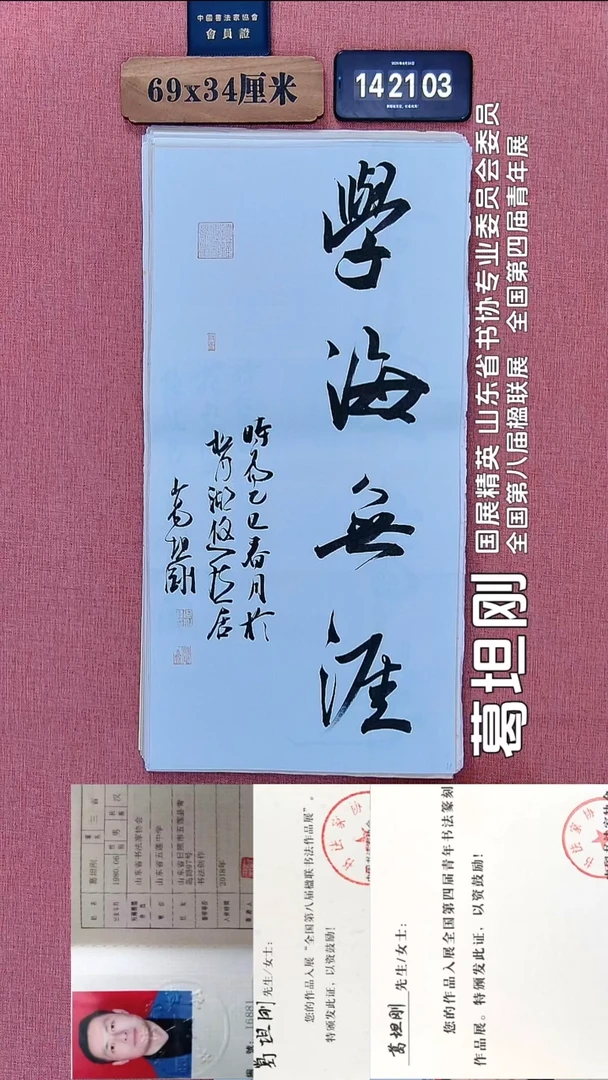 中國書法家協會
會員證
69x34厘米
14 21 03
學海無涯
時在乙巳春月於
葛坦剛
葛坦刚
国展精英 山东省书协专业委员会委员
全国第八届楹联展 全国第四届青年展
葛坦刚
1980.06
男
汉
山东省书法家协会
山东省五莲中学
书法创作
2018年
16881
葛坦刚 先生/女士:
您的作品入展“全国第八届楹联书法作品展”。
特颁发此证,以资鼓励!
葛坦刚 先生/女士:
您的作品入展全国第四届青年书法篆刻
作品展。特颁发此证,以资鼓励!